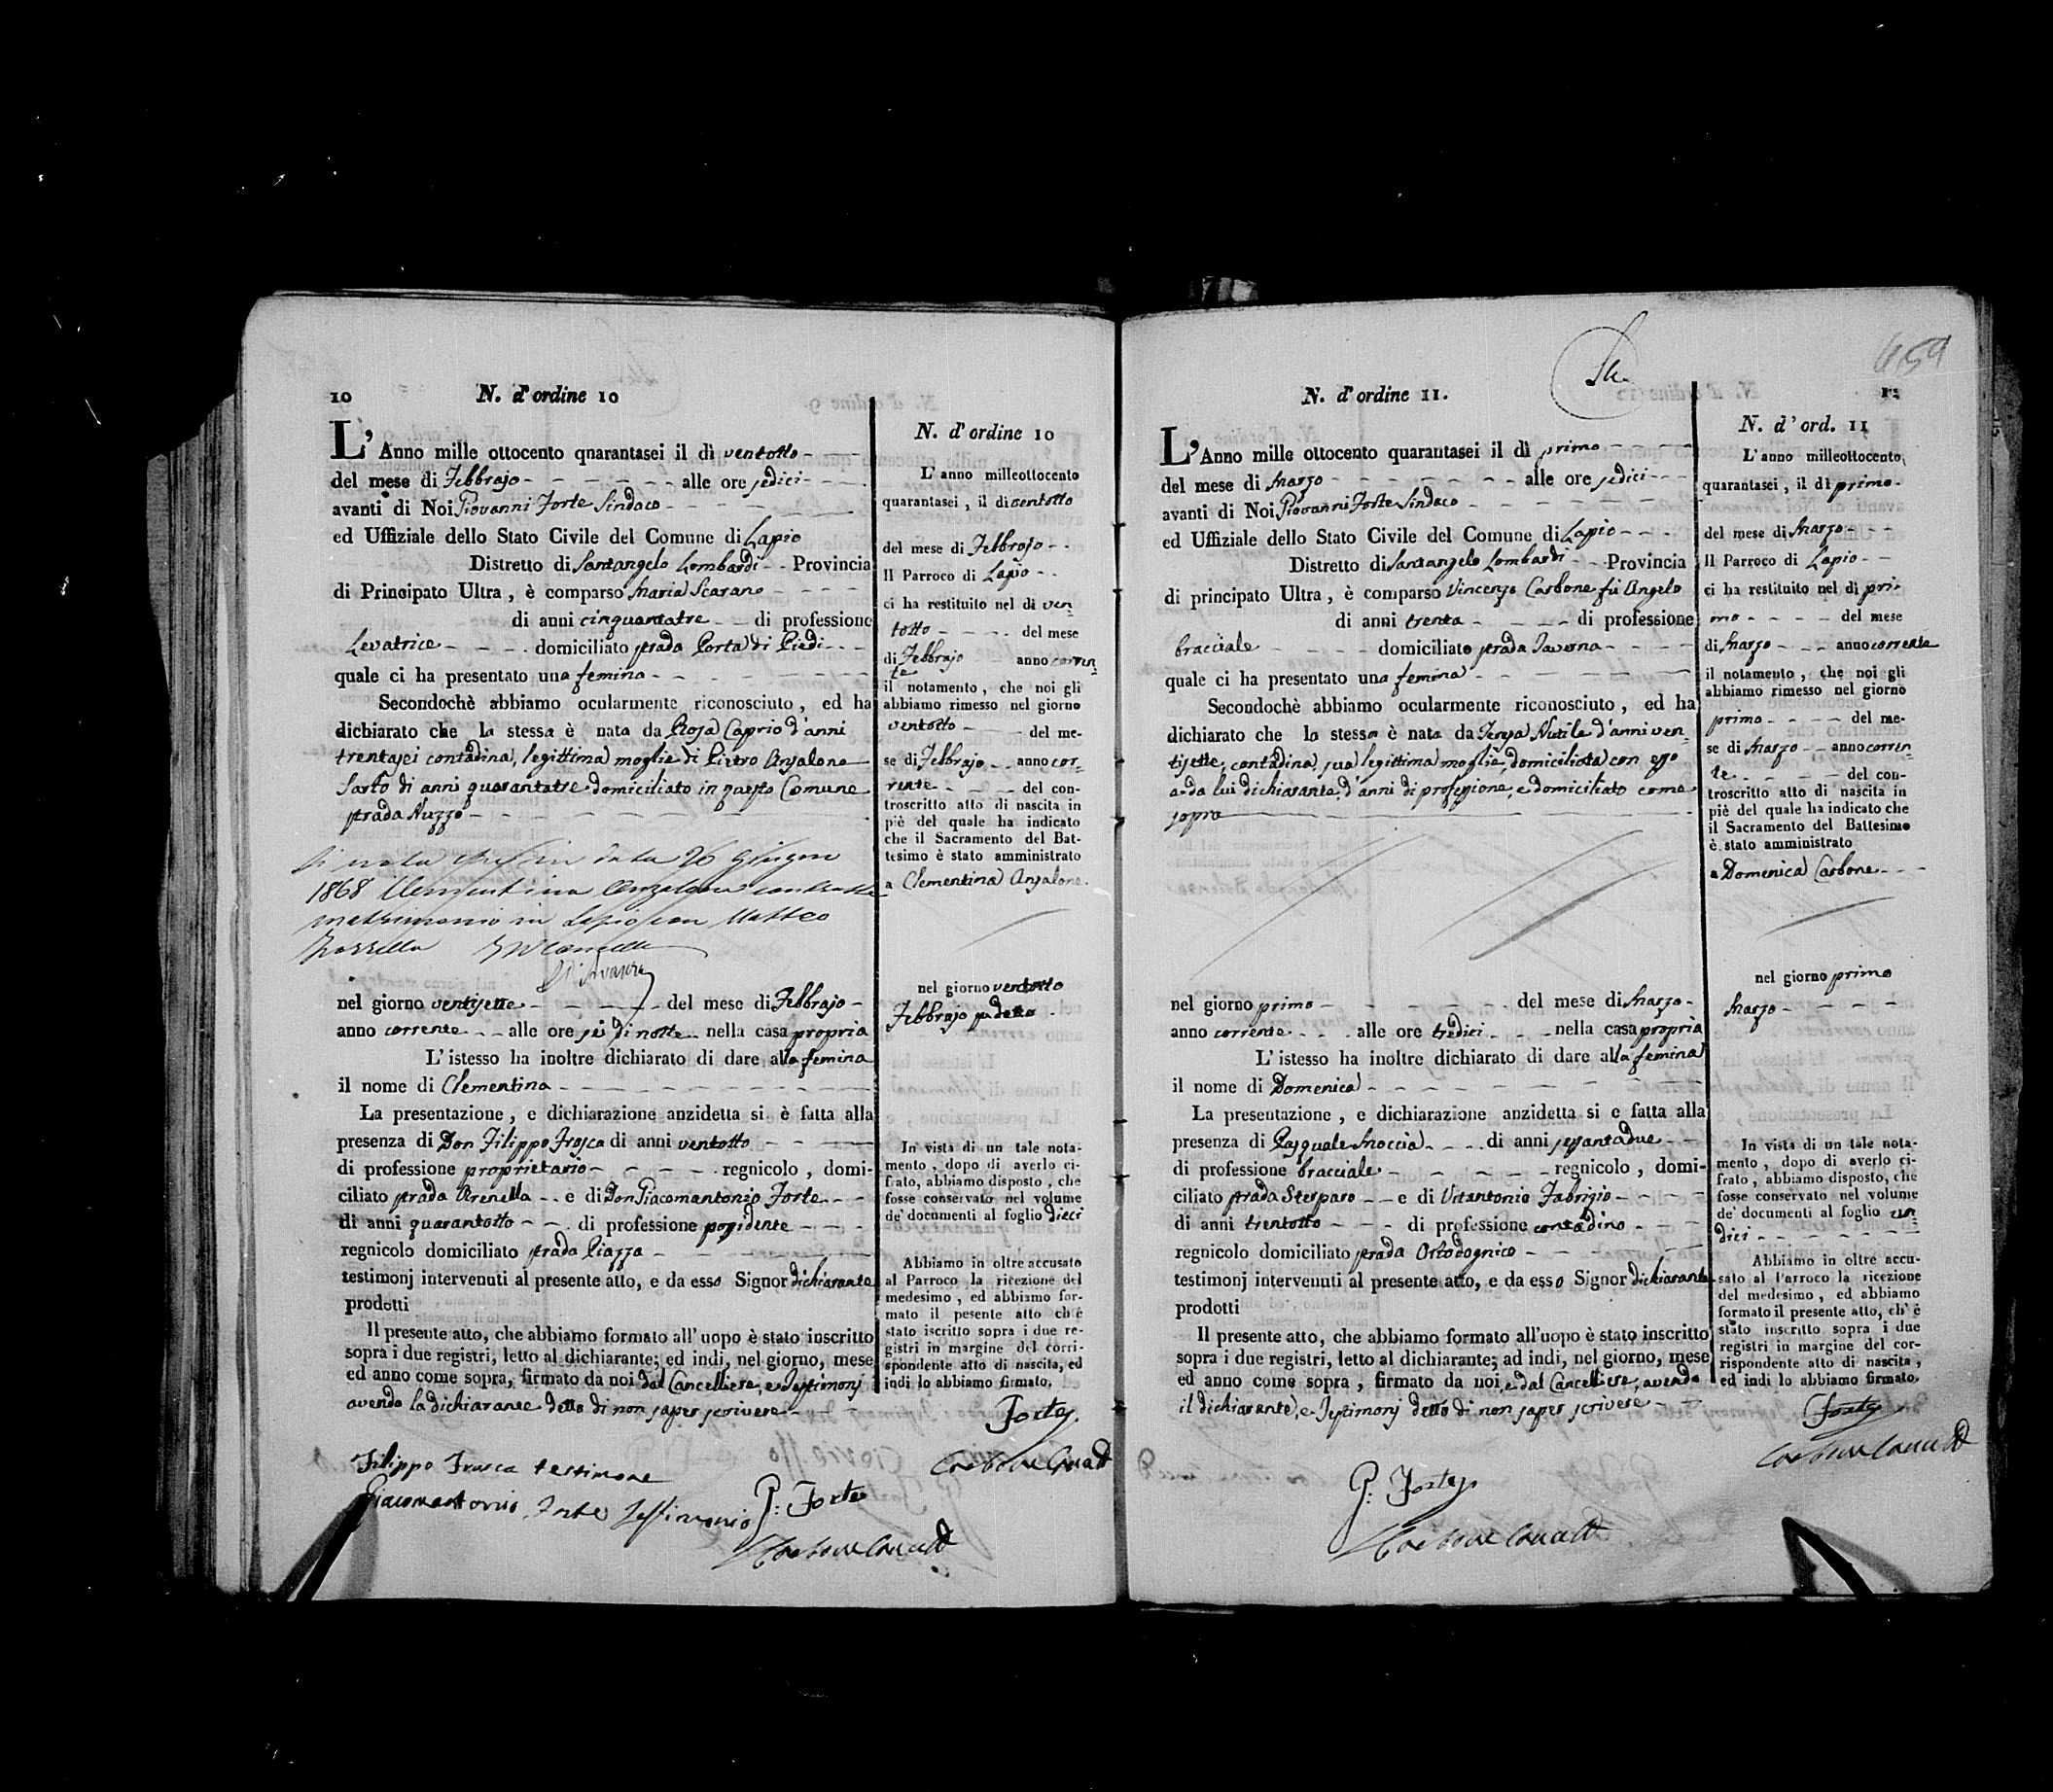 10 N. d'ordine 10
L'Anno mille ottocento quarantasei il dì ventotto
del mese di Febbrajo alle ore sedici
avanti di Noi Giovanni Forte Sindaco
ed Uffiziale dello Stato Civile del Comune di Lapio
Distretto di Santangelo Lombardi Provincia
di Principato Ultra, è comparso Maria Scarano
di anni cinquantatre di professione
Levatrice domiciliato strada Porta di Piedi
quale ci ha presentato una femina
Secondochè abbiamo ocularmente riconosciuto, ed ha
dichiarato che la stessa è nata da Rosa Caprio d'anni
trentasei contadina, legittima moglie di Pietro Anzalone
Sarto di anni quarantatre domiciliato in questo Comune
strada Nuzzo
Si nota che in data 26 Giugno
1868 Clementina Anzalone contratto
matrimonio in Lapio con Matteo
nel giorno ventisette del mese di Febbrajo
anno corrente alle ore sei di notte nella casa propria
L'istesso ha inoltre dichiarato di dare alla femina
il nome di Clementina
La presentazione, e dichiarazione anzidetta si è fatta alla
presenza di Don Filippo Frasca di anni ventotto
di professione proprietario regnicolo, domi-
ciliato strada Arenella e di Don Giacomantonio Forte
di anni quarantotto di professione possidente
regnicolo domiciliato strada Piazza
testimonj intervenuti al presente atto, e da esso Signor dichiarante
prodotti
Il presente atto, che abbiamo formato all'uopo è stato inscritto
sopra i due registri, letto al dichiarante; ed indi, nel giorno, mese
ed anno come sopra, firmato da noi dal Cancelliere, e Testimonj
avendo la dichiarante detto di non saper scrivere
Filippo Frasca testimone
Giacomantonio Forte Testimonio
G: Forte
Carbone Cancell
N. d'ordine 10
L'anno milleottocento
quarantasei, il di ventotto
del mese di Febbrajo
Il Parroco di Lapio
ci ha restituito nel di ven-
totto del mese
di Febbrajo anno corren-
te
il notamento, che noi gli
abbiamo rimesso nel giorno
ventotto del me-
se di Febbrajo anno cor-
rente del con-
troscritto atto di nascita in
piè del quale ha indicato
che il Sacramento del Bat-
tesimo è stato amministrato
a Clementina Anzalone
nel giorno ventotto
Febbrajo sudetto
In vista di un tale nota-
mento, dopo di averlo ci-
frato, abbiamo disposto, che
fosse conservato nel volume
de' documenti al foglio dieci
Abbiamo in oltre accusato
al Parroco la ricezione del
medesimo, ed abbiamo for-
mato il pesente atto ch'è
stato iscritto sopra i due re-
gistri in margine del corri-
spondente atto di nascita, ed
indi lo abbiamo firmato.
Forte
Carbone Cancell
459
N. d'ordine 11. 11
L'Anno mille ottocento quarantasei il dì primo
del mese di Marzo alle ore sedici
avanti di Noi Giovanni Forte Sindaco
ed Uffiziale dello Stato Civile del Comune di Lapio
Distretto di Santangelo Lombardi Provincia
di principato Ultra, è comparso Vincenzo Carbone fu Angelo
di anni trenta di professione
bracciale domiciliato strada Taverna
quale ci ha presentato una femina
Secondochè abbiamo ocularmente riconosciuto, ed ha
dichiarato che la stessa è nata da Teresa Nutile d'anni ven-
tisette, contadina, sua legittima moglie, domiciliata con esso
e da lui dichiarante, d'anni di professione, e domiciliato come
sopra
nel giorno primo del mese di Marzo
anno corrente alle ore tredici nella casa propria
L'istesso ha inoltre dichiarato di dare alla femina
il nome di Domenica
La presentazione, e dichiarazione anzidetta si e fatta alla
presenza di Pasquale Moccia di anni sessantadue
di professione bracciale regnicolo, domi-
ciliato strada Sterparo e di Vitantonio Fabrizio
di anni trentotto di professione contadino
regnicolo domiciliato strada Ortodognico
testimonj intervenuti al presente atto, e da esso Signor dichiarante
prodotti
Il presente atto, che abbiamo formato all'uopo è stato inscritto
sopra i due registri, letto al dichiarante; ad indi, nel giorno, mese
ed anno come sopra, firmato da noi, e dal Cancelliere, avendo
il dichiarante, e Testimonj detto di non saper scrivere
G: Forte
Carbone Cancell
N. d'ord. 11
L'anno milleottocento
quarantasei, il dì primo
del mese di Marzo
Il Parroco di Lapio
ci ha restituito nel dì pri-
mo del mese
di Marzo anno corrente
il notamento, che noi gli
abbiamo rimesso nel giorno
primo del me-
se di Marzo anno corren-
te del con-
troscritto atto di nascita in
piè del quale ha indicato che
il Sacramento del Battesimo
è stato amministrato
a Domenica Carbone
nel giorno primo
Marzo
In vista di un tale nota-
mento, dopo di averlo ci-
frato, abbiamo disposto, che
fosse conservato nel volume
de' documenti al foglio un-
dici
Abbiamo in oltre accu-
sato al Parroco la ricezione
del medesimo, ed abbiamo
formato il presente atto, ch'è
stato inscritto sopra i due
registri in margine del cor-
rispondente atto di nascita,
ed indi lo abbiamo firmato.
Forte
Carbone Cancell